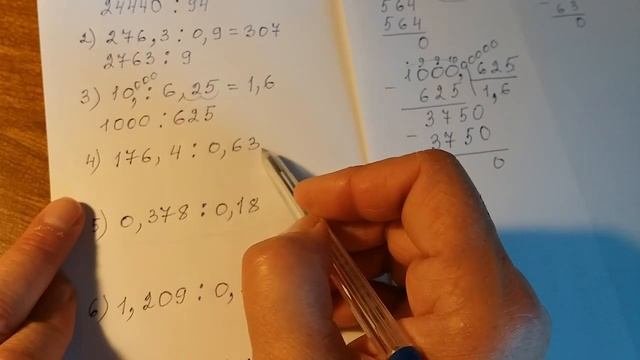 24440 : 94
2) 276,3 : 0,9 = 307
2763 : 9
3) 10,000 : 6,25 = 1,6
1000 : 625
4) 176,4 : 0,63
5) 0,378 : 0,18
6) 1,209 : 0,
564
564
0
1000,0000 625
- 625 1,6
3750
- 3750
0
- 63
0